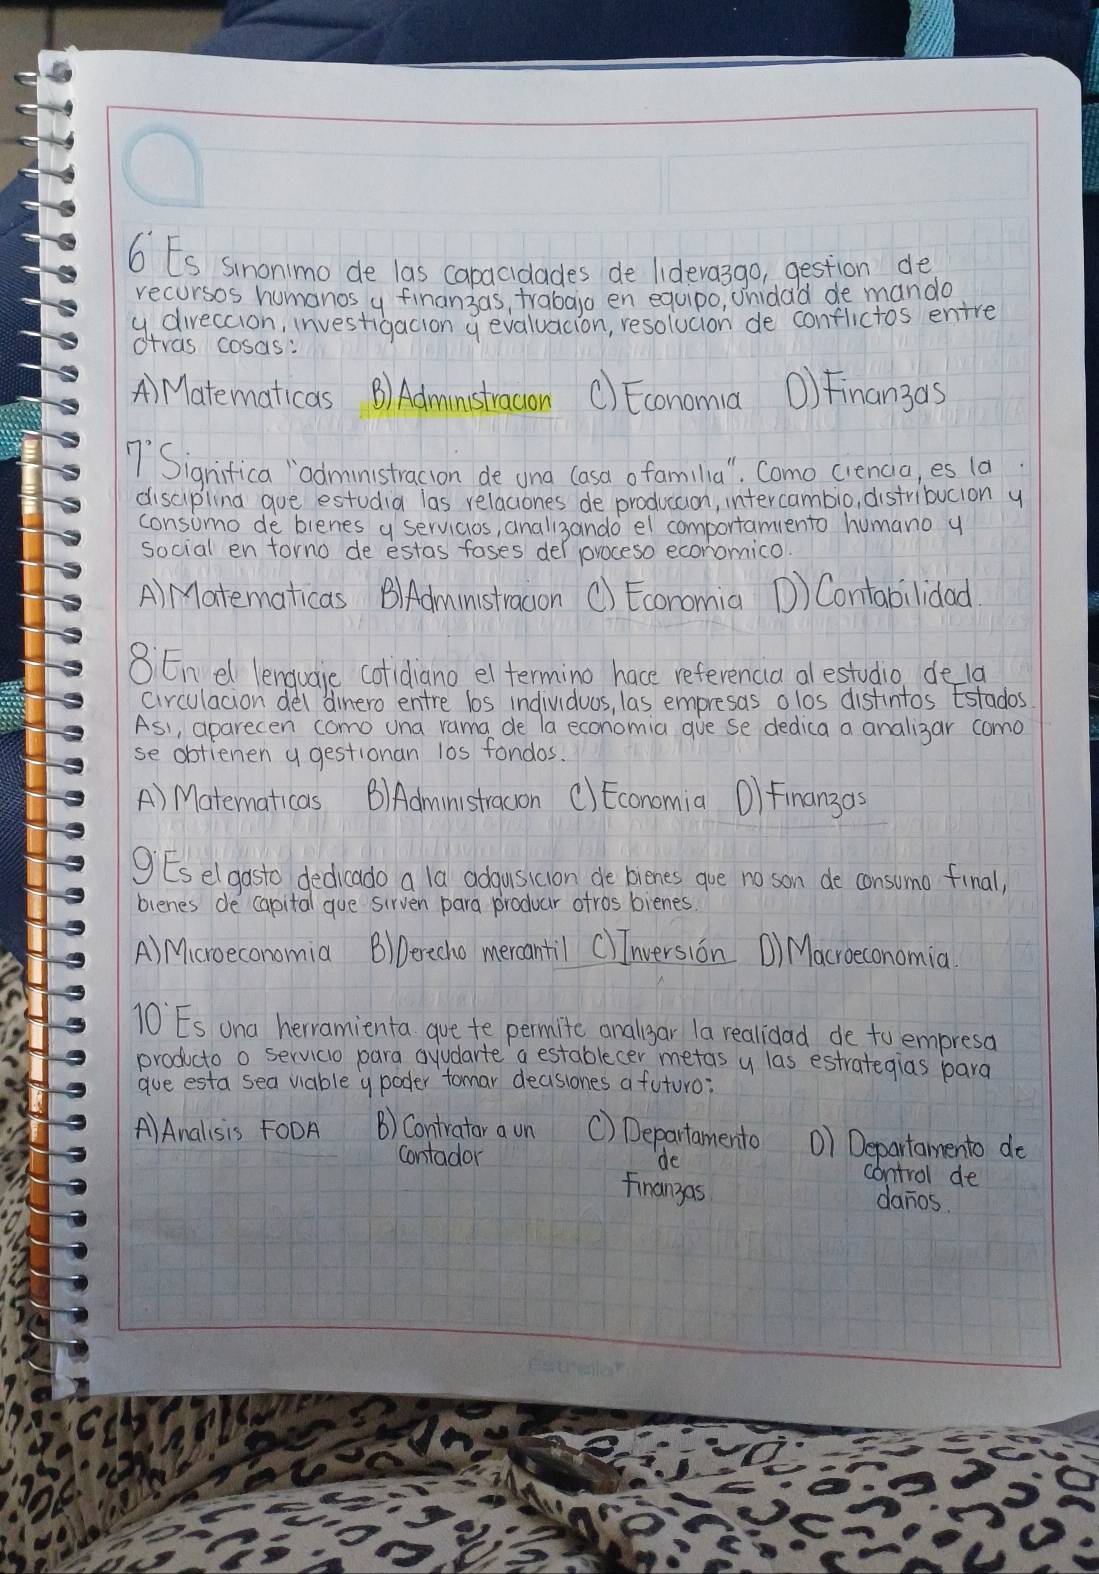 6° Es sinonimo de las capacidades de liderazgo, gestion de
recursos humanos y finanzas, trabajo en equipo, unidad de mando
y direccion, investigacion y evaluacion, resolucion de conflictos entre
otras cosas:
A) Matematicas B) Administracion C) Economia D) Finanzas
7° Significa "administracion de una casa o familia". Como ciencia, es la
disciplina que estudia las relaciones de produccion, intercambio, distribucion y
consumo de bienes y servicios, analizando el comportamiento humano y
social en torno de estas fases del proceso economico.
A) Matematicas B) Administracion C) Economia D) Contabilidad.
8° En el lenguaje cotidiano el termino hace referencia al estudio de la
circulacion del dinero entre los individuos, las empresas o los distintos Estados.
Asi, aparecen como una rama de la economia que se dedica a analizar como
se obtienen y gestionan los fondos.
A) Matematicas B) Administracion C) Economia D) Finanzas
9° Es el gasto dedicado a la adquisicion de bienes que no son de consumo final,
bienes de capital que sirven para producir otros bienes.
A) Microeconomia B) Derecho mercantil C) Inversión D) Macroeconomia.
10° Es una herramienta que te permite analizar la realidad de tu empresa
producto o servicio para ayudarte a establecer metas y las estrategias para
que esta sea viable y poder tomar decisiones a futuro:
A) Analisis FODA B) Contratar a un C) Departamento D) Departamento de
contador de control de
finanzas daños.
Estrella